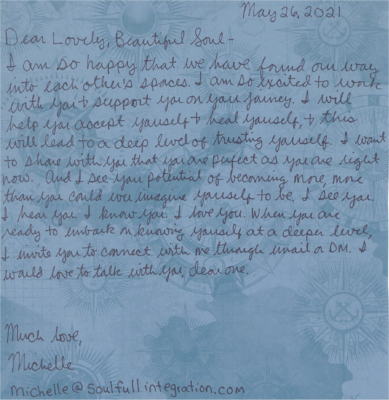 May 26, 2021
Dear Lovely, Beautiful Soul-
I am so happy that we have found our way
into each other's spaces. I am so excited to work
with you & support you on your journey. I will
help you accept yourself & heal yourself, & this
will lead to a deep level of trusting yourself. I want
to share with you that you are perfect as you are right
now. And I see your potential of becoming more, more
than you could ever imagine yourself to be. I see you.
I hear you. I know you. I love you. When you are
ready to embark on knowing yourself at a deeper level,
I invite you to connect with me through email or DM. I
would love to talk with you, dear one.
Much love,
Michelle
michelle@soulfullintegration.com